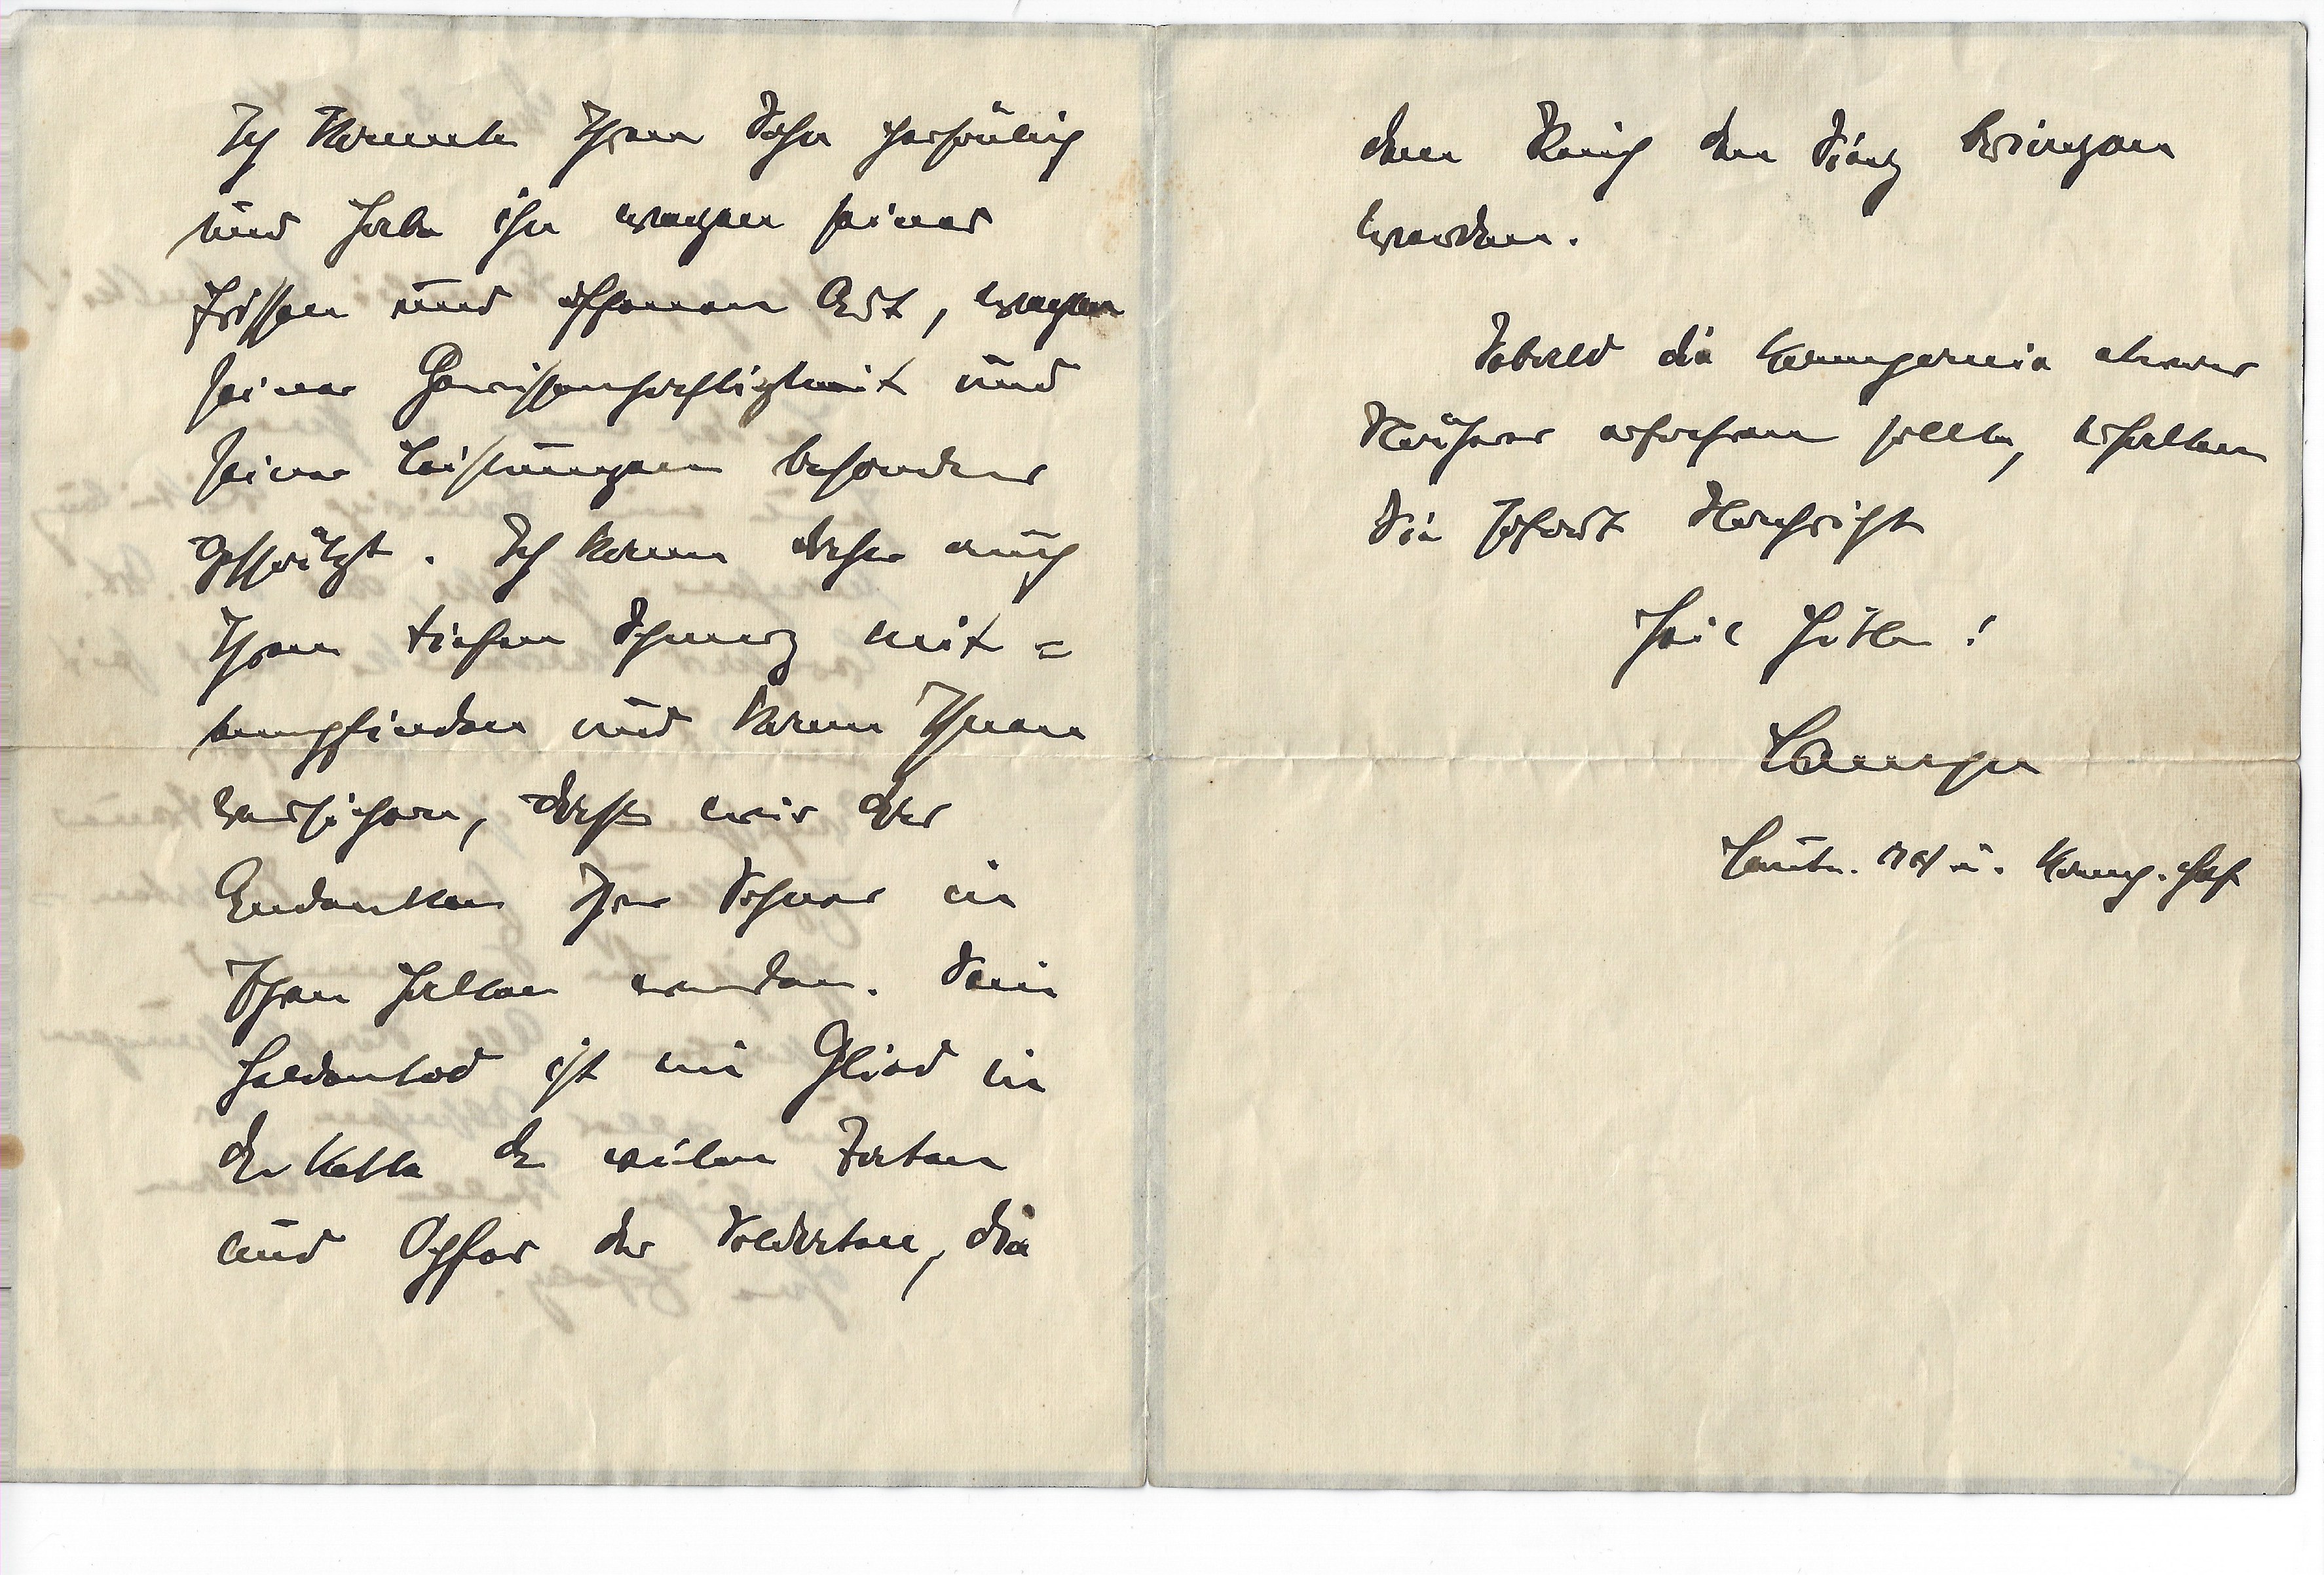 Ich kannte Ihren Sohn persönlich
und habe ihn wegen seines
frischen und offenen Art, wegen
seiner Gewissenhaftigkeit und
seiner Leistungen besonders
geschätzt. Ich kann daher auch
Ihren tiefen Schmerz mit=
empfinden und kann Ihnen
versichern, dass wir das
Andenken Ihres Sohnes in
Ehren halten werden. Sein
Heldentod ist ein Glied in
der Kette der vielen Taten
und Opfer der Soldaten, die
dem Reich den Sieg bringen
werden.
Sobald die Kompanie etwas
Näheres erfahren sollte, erhalten
Sie sofort Nachricht
Heil Hitler!
Leutn. u. Komp. Chef